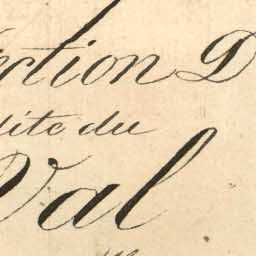 ection D
dite du
Val